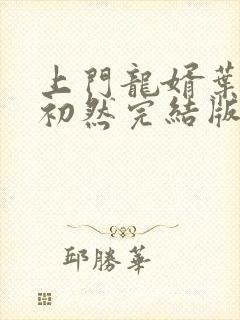 上門龍婿葉
初然完結版
邱勝華